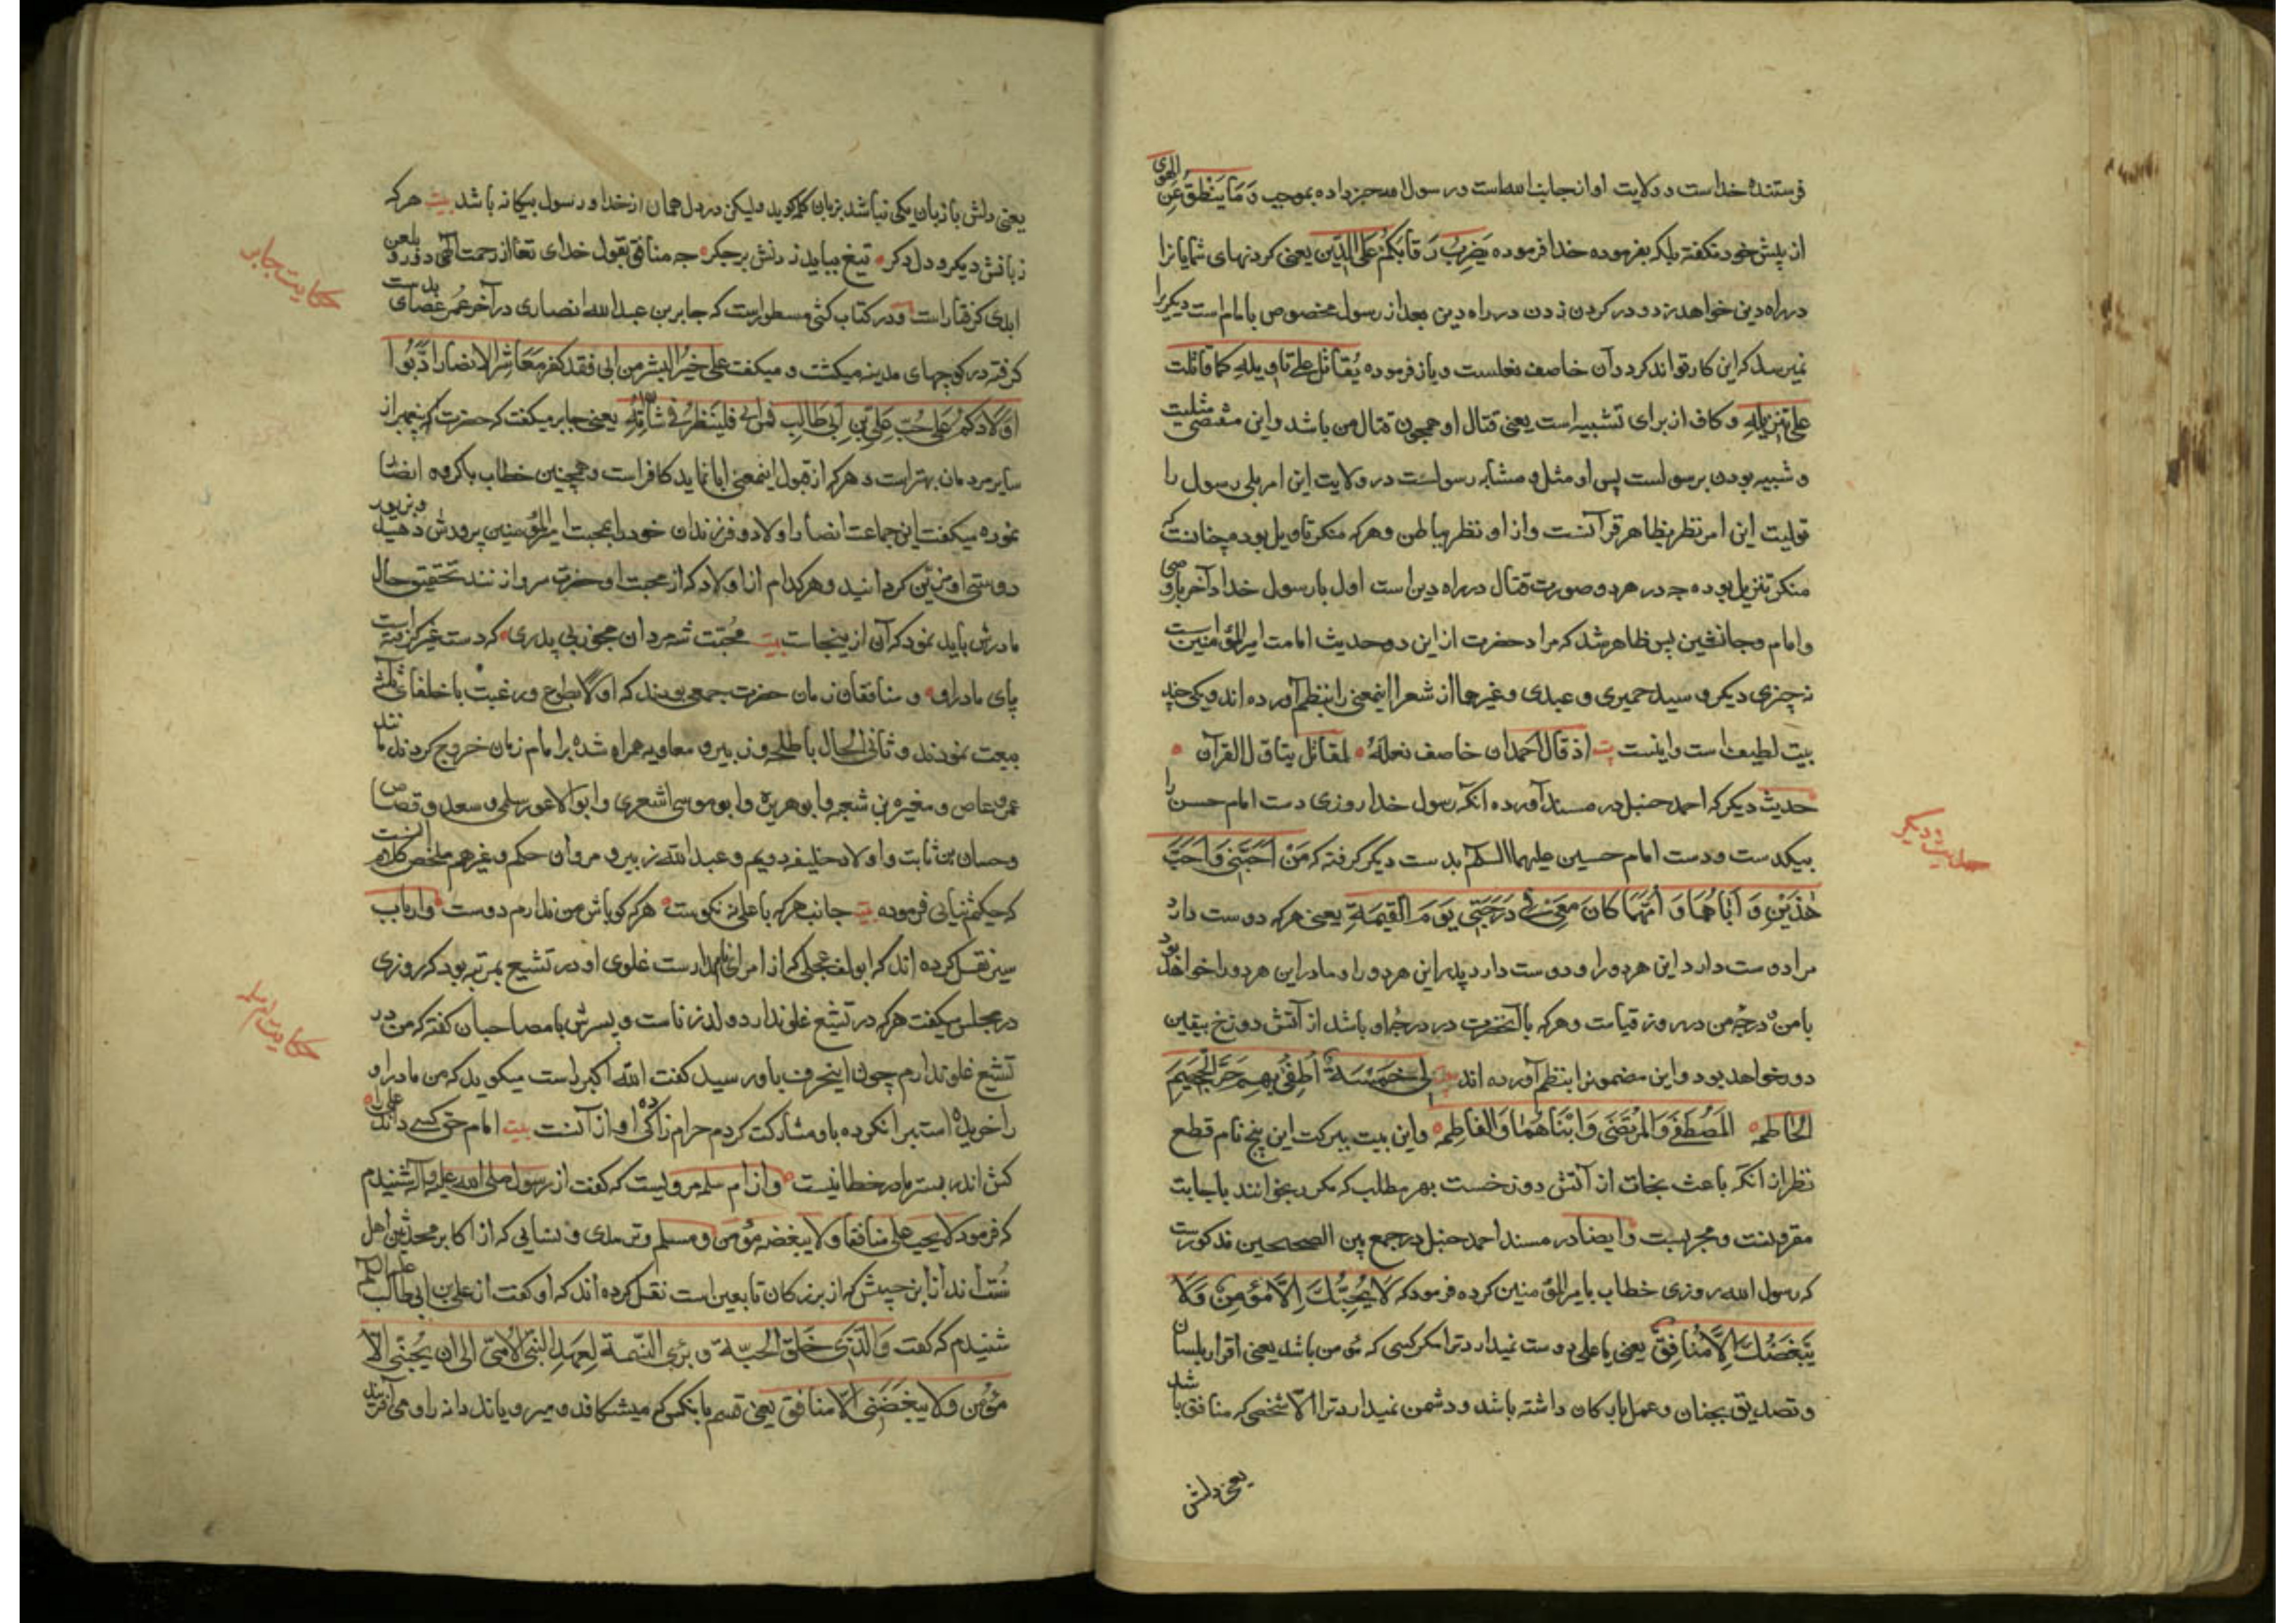 فرستندهٔ خداست و ولایت او از جانب الله است و رسول الله خبر داده بموجب وَمَا یَنْطِقُ عَنِ الهَوی
از پیش خود نکفته بلکه بفرموده خدا فرموده یَضْرِبُ رِقَابَکُمْ عَلَی الدِّین یعنی کردنهای شمایانرا
در راه دین خواهد زد و در کردن زدن در راه دین بعد از رسول مخصوص بامام است دیکریرا
نمیرسد که این کار تواند کرد و آن خاصف نعلست و باز فرموده یُقاتل علی تاویله کما قاتلت
علی تنزیله و کاف از برای تشبیه است یعنی قتال او همچون قتال من باشد و این مقتضی مثلیت
و شبیه بودن برسولست پس او مثل و مشابه رسولست در ولایت این امر بلی رسول را
تولیت این امر نظر بظاهر قرآنست و از او نظر بباطن و هرکه منکر تاویل بوده چنانست که
منکر تنزیل بوده چه در هر دو صورت قتال در راه دین است اول با رسول خدا و آخر با وصی
و امام و جانشین پس ظاهر شد که مراد حضرت از این دو حدیث امامت امیرالمؤمنین است
نه چیزی دیکر و سید حمیری و عبدی و غیرهما از شعرا اینمعنی را بنظم آورده اند و یکی چند
بیت لطیف است و اینست بیت اذ قال احمد ان خاصف نعله لمقاتل بتاول القرآن
حدیث دیکر که احمد حنبل در مسند آورده آنکه رسول خدا روزی دست امام حسن را
بیکدست و دست امام حسین علیهما السلام بدست دیکر کرفته که مَنْ اَحَبَّنِی وَاَحَبَّ
هٰذَیْنِ وَ اَبَاهُمَا وَ اُمَّهُمَا کَانَ مَعِیَ فِی دَرَجَتِی یَوْمَ القِیمَةِ یعنی هرکه دوست دارد
مرا و دوست دارد این هر دو را و دوست دارد پدر این هر دو را و مادر این هر دو را خواهد بود
با من در درجه من در روز قیامت و هرکه با آنحضرت در درجه او باشد از آتش دوزخ بیقین
دور خواهد بود و این مضمونرا بنظم آورده اند بیت لِی خَمْسَةٌ اُطْفِی بِهِمْ حَرَّ الْجَحِیمِ
الحَاطِمَه المُصْطَفی وَالْمُرْتَضَی وَابْنَاهُمَا وَالفَاطِمَه و این بیت ببرکت این پنج نام قطع
نظر از آنکه باعث نجات از آتش دوزخست بهر مطلب که مکرر بخوانند باجابت
مقرونست و مجربست و ایضا در مسند احمد حنبل و جمع بین الصحیحین مذکورست
که رسول الله روزی خطاب بامیرالمؤمنین کرده فرمود که لَا یُحِبُّکَ اِلَّا مُؤْمِنٌ وَلَا
یَبْغَضُکَ اِلَّا مُنَافِقٌ یعنی یا علی دوست نمیدارد ترا مکر کسی که مؤمن باشد یعنی اقرار بلسان
و تصدیق بجنان و عمل بارکان داشته باشد و دشمن نمیدارد ترا الا شخصی که منافق باشد
یعنی دلش
حدیث دیکر
یعنی دلش با زبان یکی نباشد بزبان کلمه کوید ولیکن در دل همان از خدا و رسول بیکانه باشد بیت هرکه
زبانش دیکر و دل دکر تیغ بباید زدنش بر جکر چه منافق بقول خدای تعا از رحمت الهی دور و بلعن
ابدی کرفتار است و در کتاب کشی مسطور است که جابر بن عبدالله انصاری در آخر عمر عصای بدست
کرفته در کوچهای مدینه میکشت و میکفت علی خیر البشر من ابی فقد کفر مَعَاشِرَ الانصار ادّبوا
اَوْلَادکُمْ عَلی حُبِّ عَلِیِّ بْنِ اَبِی طَالِبٍ فمن ابی فلینظر فی شان اُمِّهِ یعنی جابر میکفت که حضرت امیر بهتر از
سایر مردمان بهتر است و هرکه از قبول اینمعنی ابا نماید کافر است و همچنین خطاب با کروه انصار
نموده میکفت این جماعت انصار اولاد و فرزندان خود را بمحبت امیرالمؤمنین پرورش دهید و بزیور
دوستی او مزین کردانید و هرکدام از اولاد که از محبت او حضرت سر واز نند تحقیق حال
مادرش باید نمود که آن از ینجاست بیت محبت شه مردان مجو ز بی پدری که دست غیر کرفته است
پای مادر او و منافقان زمان حضرت جمعی بودند که اولا بطوع و رغبت با خلفای ثلثه
بیعت نمودند و ثانی الحال با طلحه و زبیر و معاویه همراه شده بر امام زمان خروج کردند مانند
عمرو عاص و مغیره بن شعبه و ابو هریره و ابو موسی اشعری و ابو الاعور سلمی و سعد وقاص
و حسان بن ثابت و اولاد خلیفه دویم و عبدالله زبیر و مروان حکم و غیرهم ملخص کلام آنست
که حکیم ثنایی فرموده بیت جانب هرکه با علی نه نکوست هرکه کو باش من ندارم دوست و ارباب
سیر نقل کرده اند که ابو دلف عجلی که از امرای نامدار است غلوی او در تشیع بمرتبه بود که روزی
در مجلس میکفت هرکه در تشیع غلو ندارد ولد زناست و پسرش با مصاحبان کفته که من در
تشیع غلو ندارم چون اینحرف باو رسید کفت الله اکبر راست میکوید که من مادر او
را خریده استبرا نکرده باو مشارکت کردم حرام زادکی او از آنست بیت امام حق کسی داند علی را
کش اندر بستر مادر خطا نیست و از ام سلمه مرویست که کفت از رسول صلی الله علیه و آله شنیدم
که فرمود لا یحب علی منافقا و لا یبغضه مؤمن و مسلم و ترمذی و نسایی که از اکابر محدثین اهل
سنت اند از ابن حبیش که از بزرکان تابعین است نقل کرده اند که او کفت از علی بن ابی طالب علیه السلام
شنیدم که کفت وَالَّذِی خَلَقَ الحَبَّةَ و بَرَی النَّسَمَةَ لعهد النبی الامی الی ان یُحِبُّنِی الا
مؤمن ولا یبغضنی الا منافق یعنی قسم بانکس که میشکافد و میرویاند دانه را و می آفریند
حکایت جابر
حکایت ام سلمه